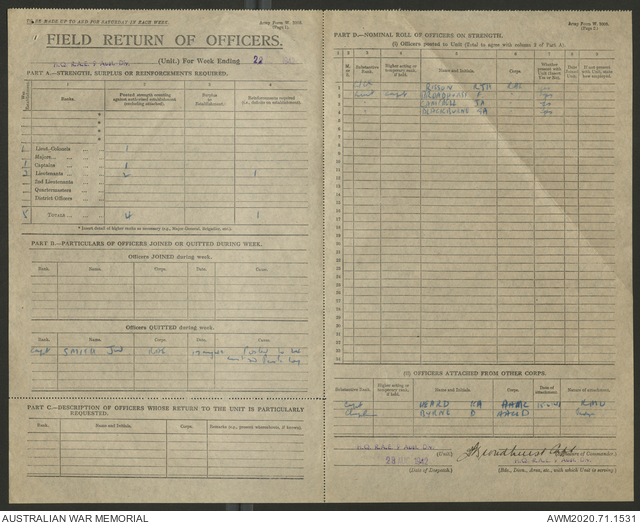 TO BE MADE UP TO AND FOR SATURDAY IN EACH WEEK.
Army Form W. 3008.
(Page 1)
FIELD RETURN OF OFFICERS.
H.Q. R.A.E. 9 Aust. Div. (Unit.) For Week Ending 22
PART A.—STRENGTH, SURPLUS OR REINFORCEMENTS REQUIRED.
1 2 3 4
Ranks. Posted strength counting against authorised establishment (excluding attached). Surplus to Establishment. Reinforcements required (i.e., deficits to establishment).
*
*
*
*
Lieut. Colonels 1
Majors
1 Captains 1
Lieutenants 2 1
2nd Lieutenants
Quartermasters
District Officers
5 TOTALS 4 1
* Insert detail of higher ranks as necessary (e.g., Major-General, Brigadier, etc.).
PART B.—PARTICULARS OF OFFICERS JOINED OR QUITTED DURING WEEK.
Officers JOINED during week.
Rank. Name. Corps. Date. Cause.
Officers QUITTED during week.
Rank. Name. Corps. Date. Cause.
Capt SMITH RAE Posted to
PART C.—DESCRIPTION OF OFFICERS WHOSE RETURN TO THE UNIT IS PARTICULARLY REQUESTED.
Rank. Name and Initials. Corps. Remarks (e.g., present whereabouts, if known).
Army Form W. 3008.
(Page 2)
PART D.—NOMINAL ROLL OF OFFICERS ON STRENGTH.
(i) Officers posted to Unit (Total to agree with column 2 of Part A).
1 2 3 4 5 6 7 8 9
Substantive Rank. Higher acting or temporary rank, if held. Name and Initials. Corps. Whether present with Unit (insert Yes or No). Date joined Unit. If not present with Unit, state how employed.
RISSON RJH RAE Yes
Lieut Capt BROADHURST Yes
CAMPBELL JA Yes
BLACKBURNE Yes
(ii) OFFICERS ATTACHED FROM OTHER CORPS.
Substantive Rank. Higher acting or temporary rank, if held. Name and Initials. Corps. Date of attachment. Nature of attachment.
Capt WARD AAMC RMO
Chap BYRNE
H.Q. R.A.E. 9 Aust. Div. (Unit)
(Date of Despatch.)
Broadhurst Capt (Signature of Commander.)
H.Q. R.A.E. 9 Aust. Div.
(Bde., Divn., Area, etc., with which Unit is serving)
AUSTRALIAN WAR MEMORIAL
AWM2020.71.1531